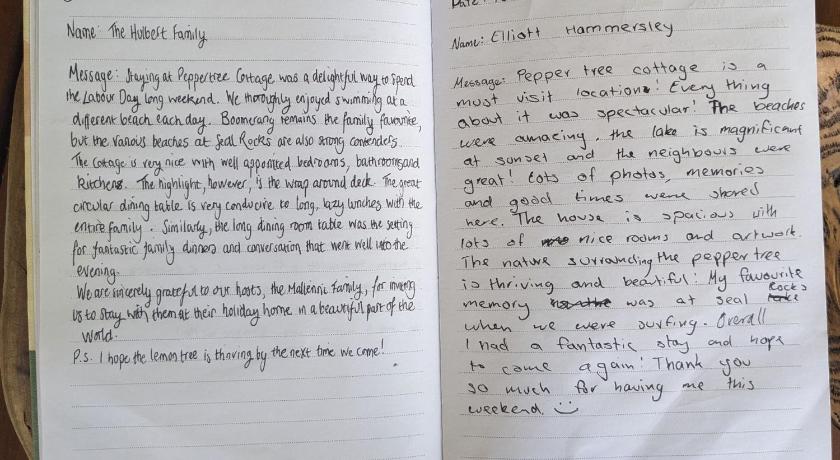 Name: The Hulbert Family
Message: Staying at Peppertree Cottage was a delightful way to spend
the Labour Day long weekend. We thoroughly enjoyed swimming at a
different beach each day. Boomerang remains the family favourite,
but the various beaches at Seal Rocks are also strong contenders.
The Cottage is very nice with well appointed bedrooms, bathrooms and
kitchens. The highlight, however, is the wrap around deck. The great
circular dining table is very conducive to long, lazy lunches with the
entire family. Similarly, the long dining room table was the setting
for fantastic family dinners and conversation that went well into the
evening.
We are sincerely grateful to our hosts, the Family, for inviting
us to stay with them at their holiday home in a beautiful part of the
world.
P.s. I hope the lemon tree is thriving by the next time we come!
Date:
Name: Elliott Hammersley
Message: Pepper tree cottage is a
must visit location! Every thing
about it was spectacular! The beaches
were amazing. the lake is magnificent
at sunset and the neighbours were
great! Lots of photos, memories
and good times were shared
here. The house is spacious with
lots of nice rooms and artwork.
The nature surrounding the pepper tree
is thriving and beautiful! My favourite
memory was at seal Rocks
when we were surfing. Overall
I had a fantastic stay and hope
to come again! Thank you
so much for having me this
weekend. :)